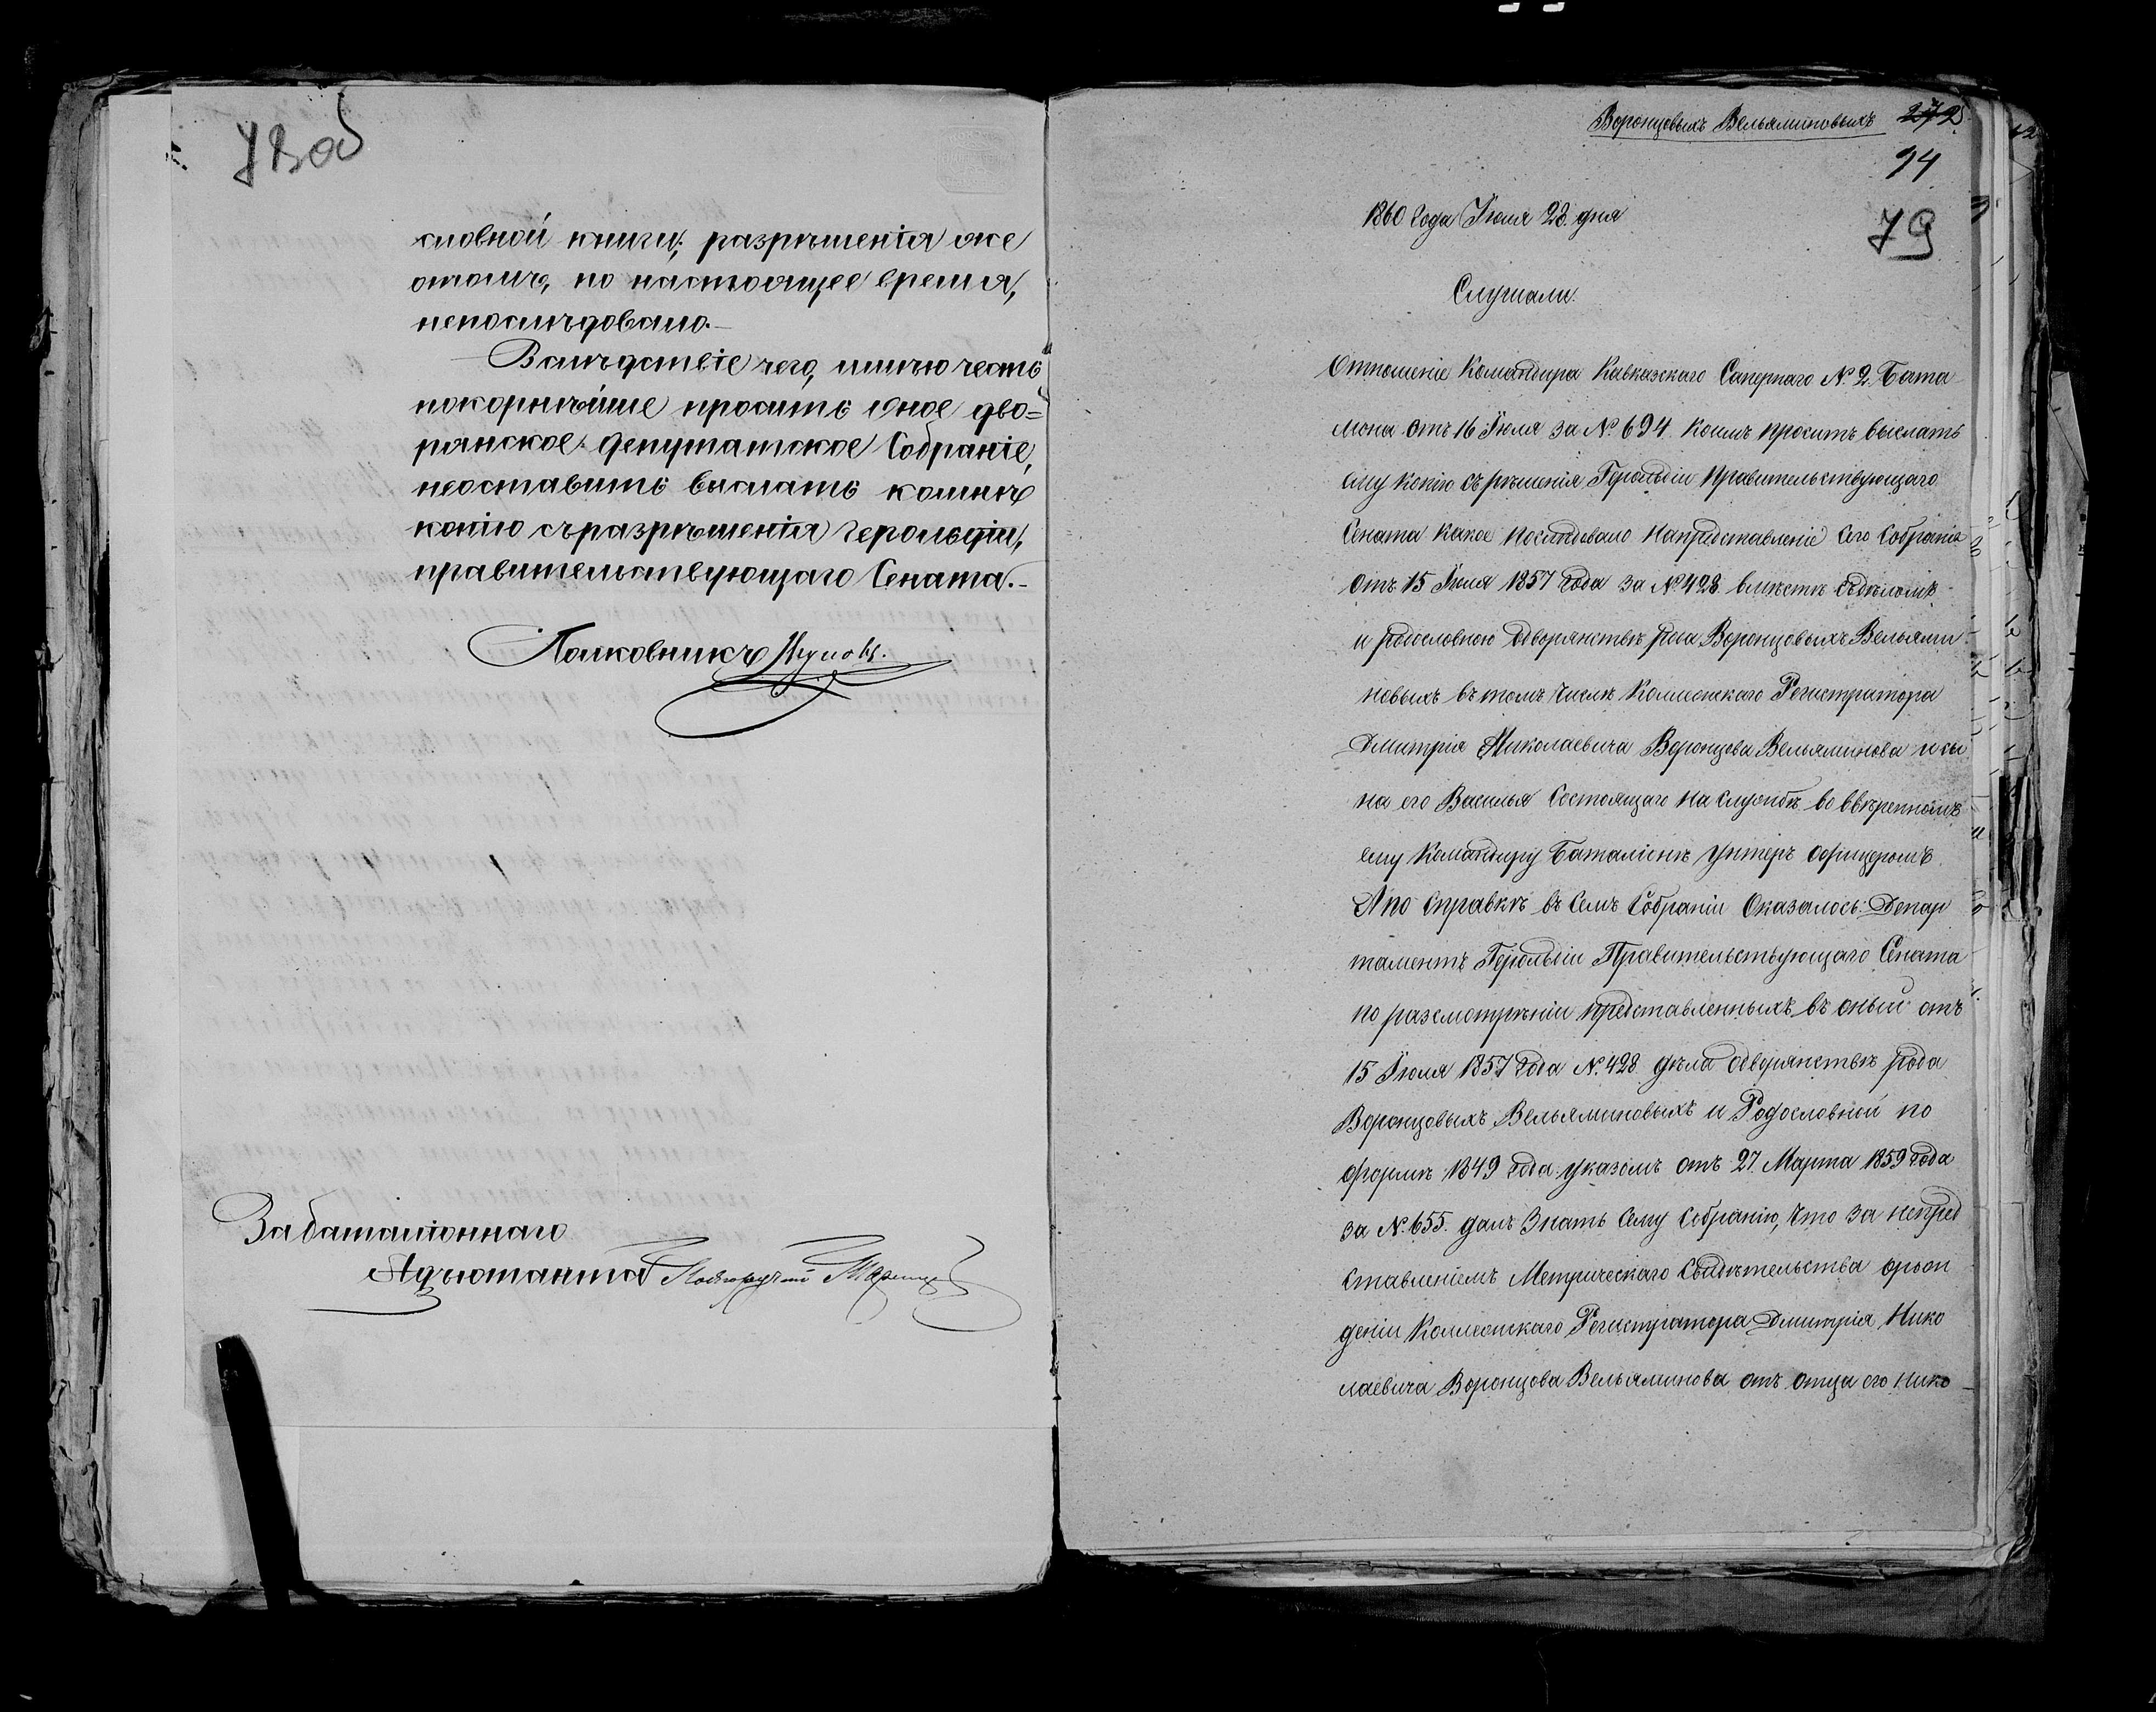 78 об
словной книги; разрѣшенія же
отомъ, по настоящее время,
непослѣдовало.—
Вслѣдствіе чего, имѣю честь
покорнѣйше просить оное дво=
рянское депутатское Собраніе,
неоставить выслать комнѣ
копію съразрѣшенія герольдіи,
правительствующаго Сената.—
Полковникъ
Забаталіоннаго
Адъютанта Подпоручикъ
Воронцовыхъ Вельяминовыхъ 272
94
79
1860 года Іюля 28 дня
Слушали.
Отношеніе Командира Кавказскаго Сапернаго №. 2. Бата
лiона отъ 16 Іюля за №. 694. коимъ проситъ выслать
ему копію съ рѣшенія Герольдіи Правительствующаго
Сената какое послѣдовало напредставленіе сего Собранія
отъ 15 Іюля 1857 года за № 428. вмѣстѣ съдѣломъ
и родословною одворянствѣ рода Воронцовыхъ Вельями
новыхъ въ томъ числѣ Коллежскаго Регистратора
Дмитрія Николаевича Воронцова Вельяминова и сы
на его Василья Состоящаго на службѣ во ввѣренномъ
ему Командиру Баталіонѣ унтеръ офицеромъ.
А по справкѣ въ семъ Собраніи Оказалось: Депар
таментъ Герольдіи Правительствующаго Сената
по разсмотрѣніи представленныхъ въ оный отъ
15 Іюля 1857 года №. 428 дѣла одворянствѣ рода
Воронцовыхъ Вельяминовыхъ и Родословной по
формѣ 1849 года указомъ отъ 27 Марта 1859 года
за №. 655. далъ знать сему Собранію, что за непред
ставленіемъ Метрическаго Свидѣтельства орож
деніи Коллежскаго Регистратора Дмитрія Нико
лаевича Воронцова Вельяминова отъ отца его Нико